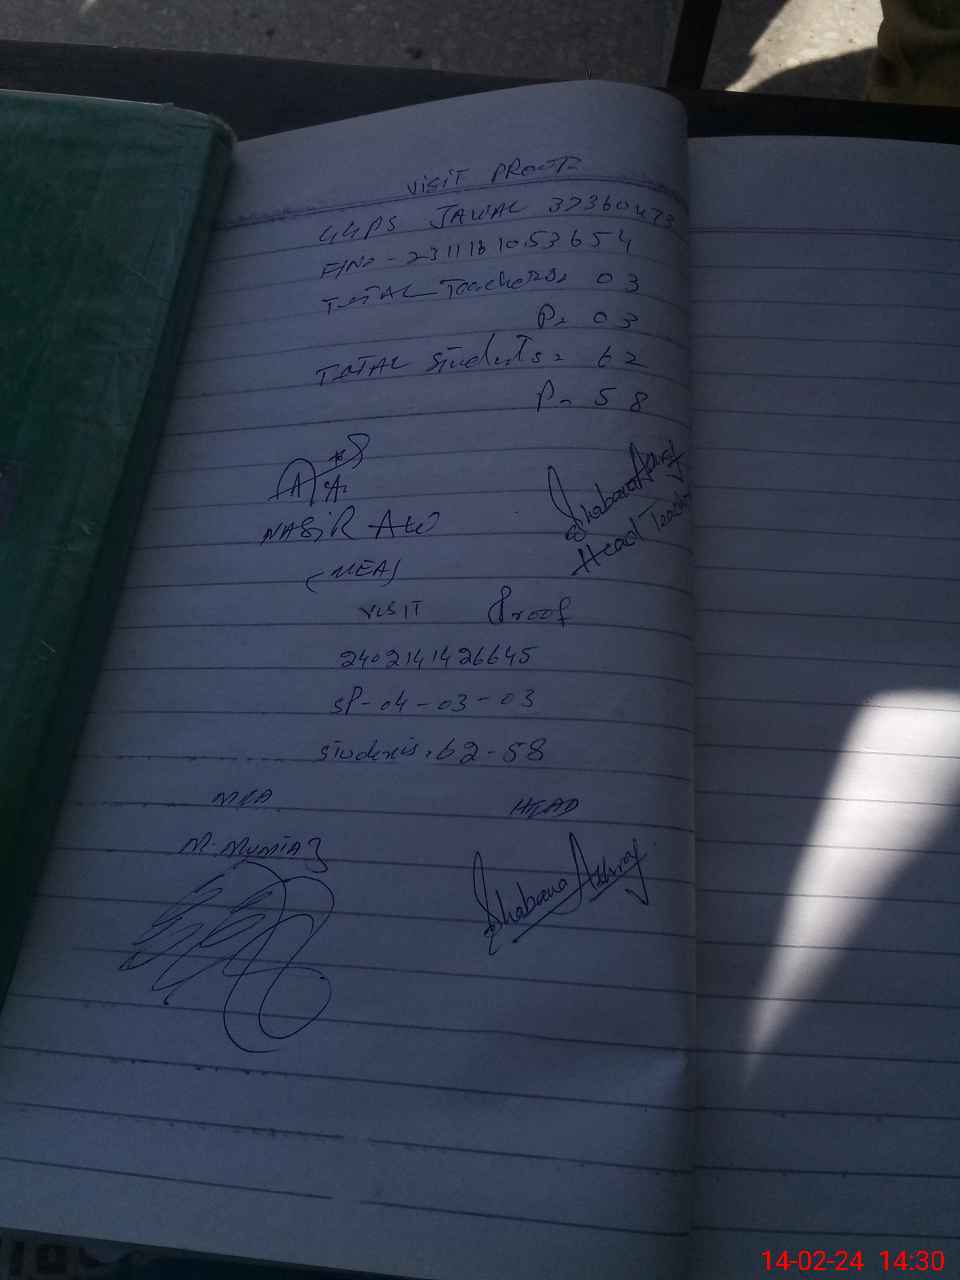 VISIT PROOF
GGPS JAWAL 37360473
F/No - 2311181053654
TOTAL Teachers = 03
P = 03
TOTAL Students = 62
P = 58
NASIR ALI
Shabana Ashraf
Head Teacher
(MEA)
VISIT Proof
2402141426645
SP-04-03-03
Students. 62-58
MEA
HEAD
M. MUMTAZ
Shabana Ashraf
14-02-24 14:30